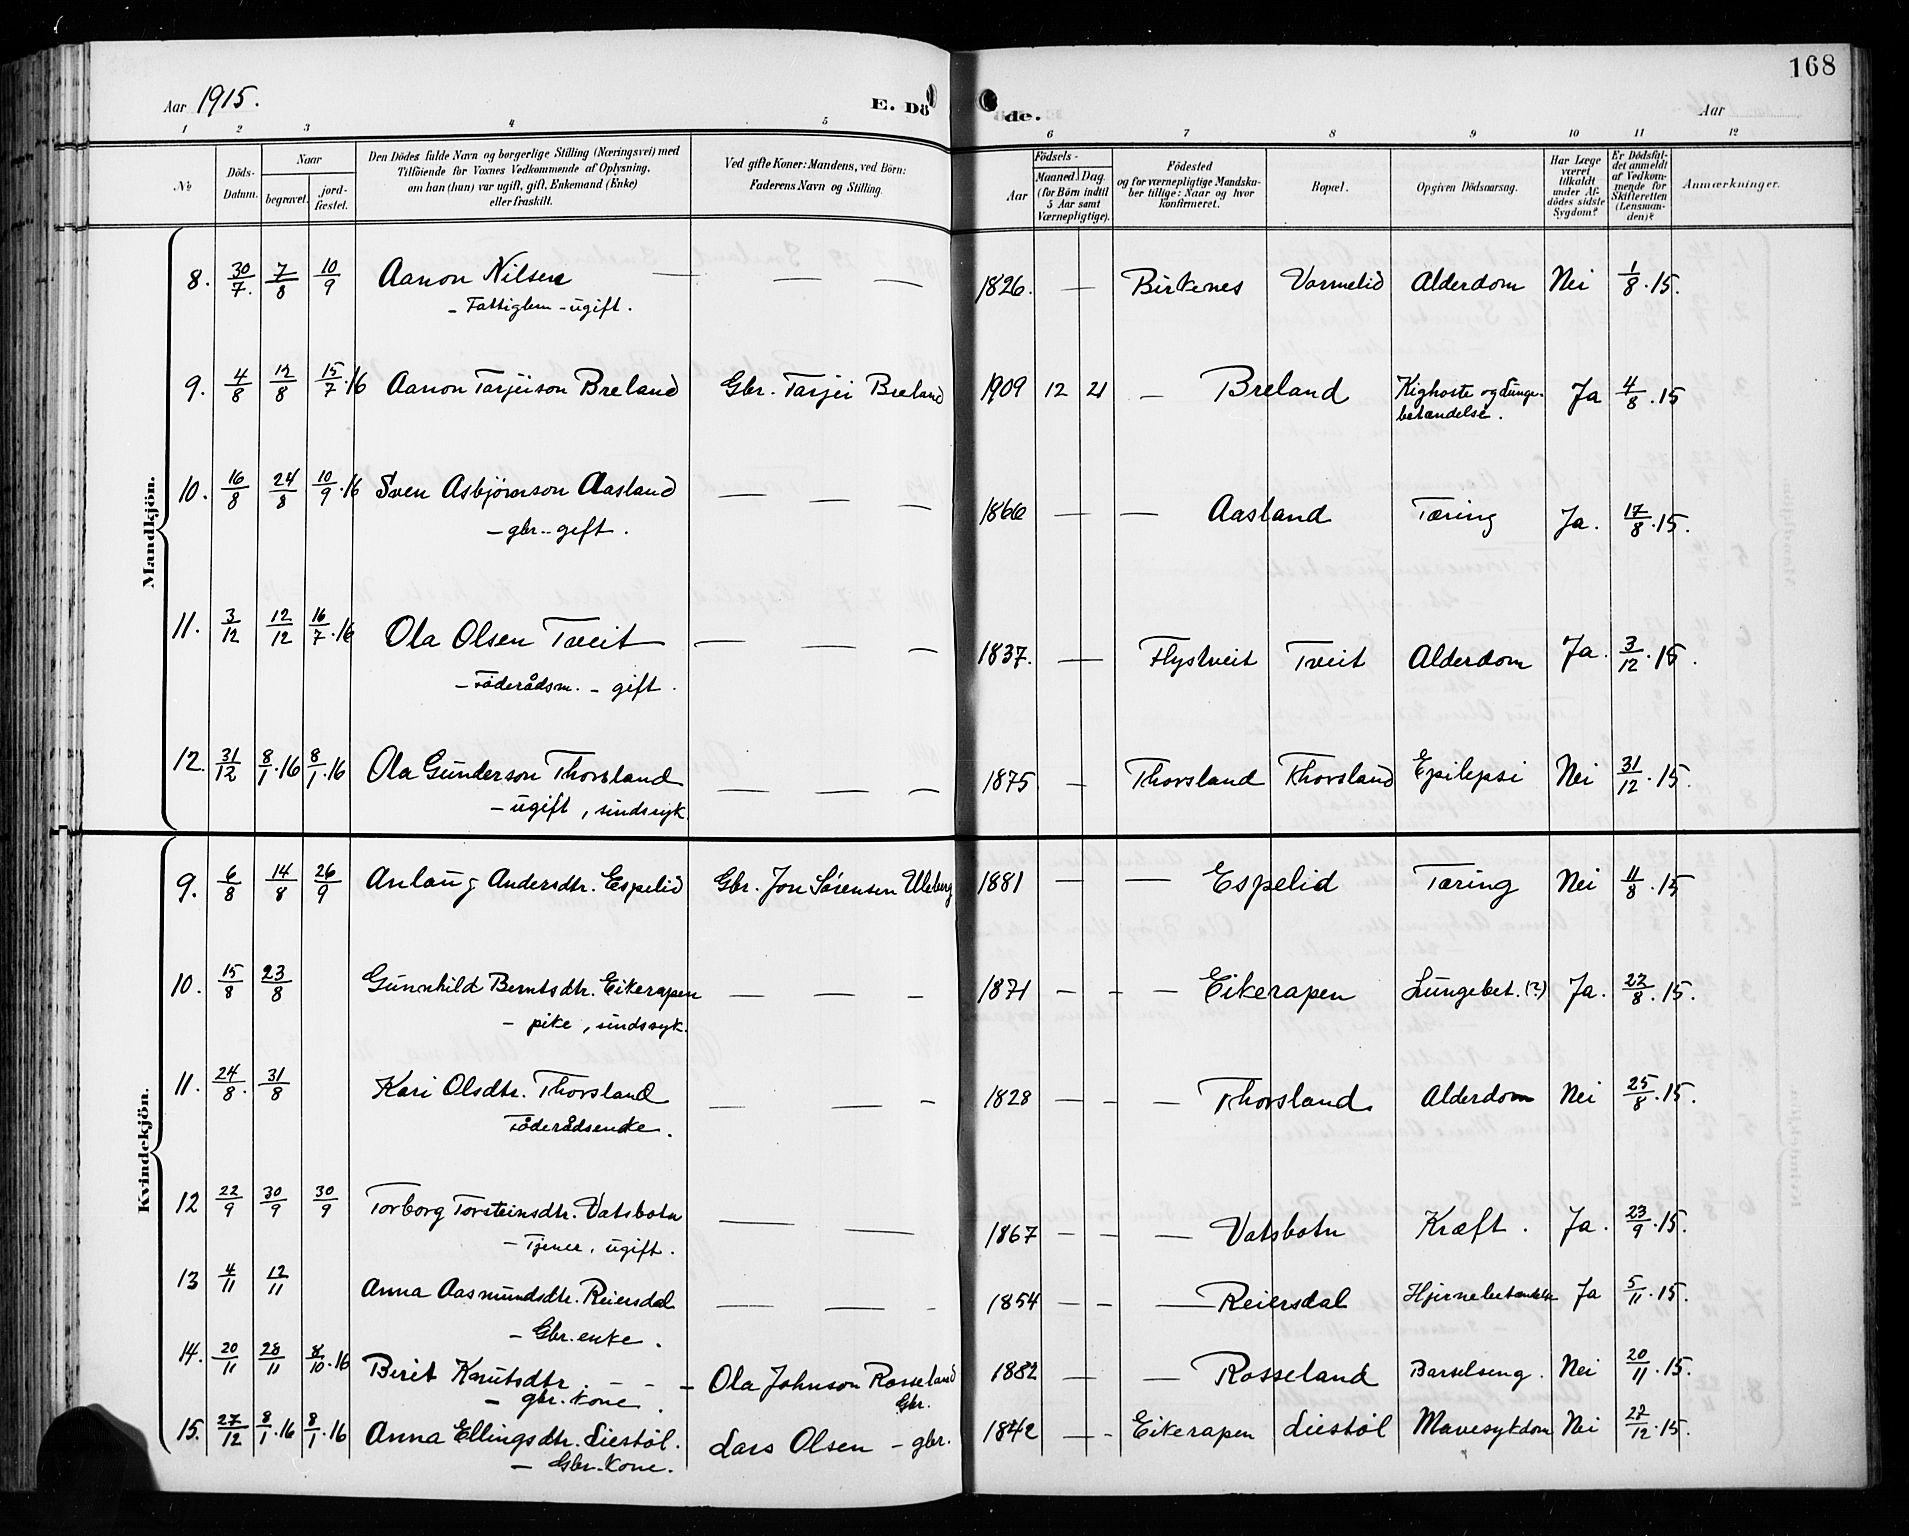 168
Aar 1915.
E. Dö
de.
Aar
1 2 3 4 5 6 7 8 9 10 11 12
№
Döds-Datum.
Naar
begravet.
jord-fæstet.
Den Dödes fulde Navn og borgerlige Stilling (Næringsvei) med
Tilföiende for Voxnes Vedkommende af Oplysning,
om han (hun) var ugift, gift, Enkemand (Enke)
eller fraskilt.
Ved gifte Koner: Mandens, ved Börn:
Faderens Navn og Stilling.
Födsels-
Aar
Maaned. Dag.
(for Börn indtil
5 Aar samt
Værnepligtige).
Födested
og for værnepligtige Mandska-
ber tillige: Naar og hvor
konfirmeret.
Bopæl.
Opgiven Dödsaarsag.
Har Læge
været
tilkaldt
under Af-
dödes sidste
Sygdom?
Er Dödsfal-
det anmeldt
af Vedkom-
mende for
Skifteretten
(Lensman-
den)?
Anmærkninger.
Mandkjön.
8. 30/7. 7/8 10/9 Aanon Nilsen — — — 1826. — Birkenes Varmelid Alderdom Nei 1/8.15.
- Fattiglem - ugift.
9. 4/8 12/8 15/7.16 Aanon Tarjeison Breland Gbr. Tarjei Breland 1909 12 21 — Breland Kighoste og Lunge-
betændelse. Ja 4/8.15
10. 16/8 24/8 10/9.16 Sven Asbjørnson Aasland — — — 1866 — — Aasland Tæring Ja. 17/8.15.
- gbr. - gift.
11. 3/12 12/12 16/7.16 Ola Olsen Tveit — — — 1837. — Flystveit Tveit Alderdom Ja. 3/12.15.
- Föderådsm. - gift.
12. 31/12 8/1.16 8/1.16 Ola Gunderson Thorsland — — — 1875 — Thorsland Thorsland Epilepsi Nei 31/12.15.
- ugift, sindssyk.
Kvindekjön.
9. 6/8 14/8 26/9 Anlaug Andersdtr. Espelid Gbr. Jon Sørensen Uleberg 1881 — — Espelid Tæring Nei 11/8.15
10. 15/8 23/8 Gunnhild Berntsdtr. Eikerapen — — — 1871 — — — Eikerapen Lungebet. (?) Ja. 22/8.15.
- pike, sindssyk.
11. 24/8. 31/8 Kari Olsdtr. Thorsland — — — 1828 — — — Thorsland. Alderdom Nei 25/8.15.
Föderådsenke.
12 22/9 30/9 30/9 Torborg Torsteinsdtr. Vatsbotn — — 1867 — — — Vatsbotn Kræft. Ja. 23/9.15.
- Tjener, ugift.
13 4/11 12/11 Anna Aasmundsdtr. Reiersdal — — — 1854 — — — Reiersdal Hjernebetændelse Ja 5/11.15.
- Gbr. enke.
14. 20/11 28/11 8/10.16 Berit Knutsdtr. - - - Ola Johnson Rosseland 1882 — — Rosseland Barselseng. Nei 20/11.15.
- gbr. kone. Gbr.
15. 27/12 8/1.16 8/1.16 Anna Ellingsdtr. Liestøl. Lars Olsen - gbr. 1842 — - Eikerapen Liestøl Mavesykdom Nei 27/12.15.
- Gbr. kone.